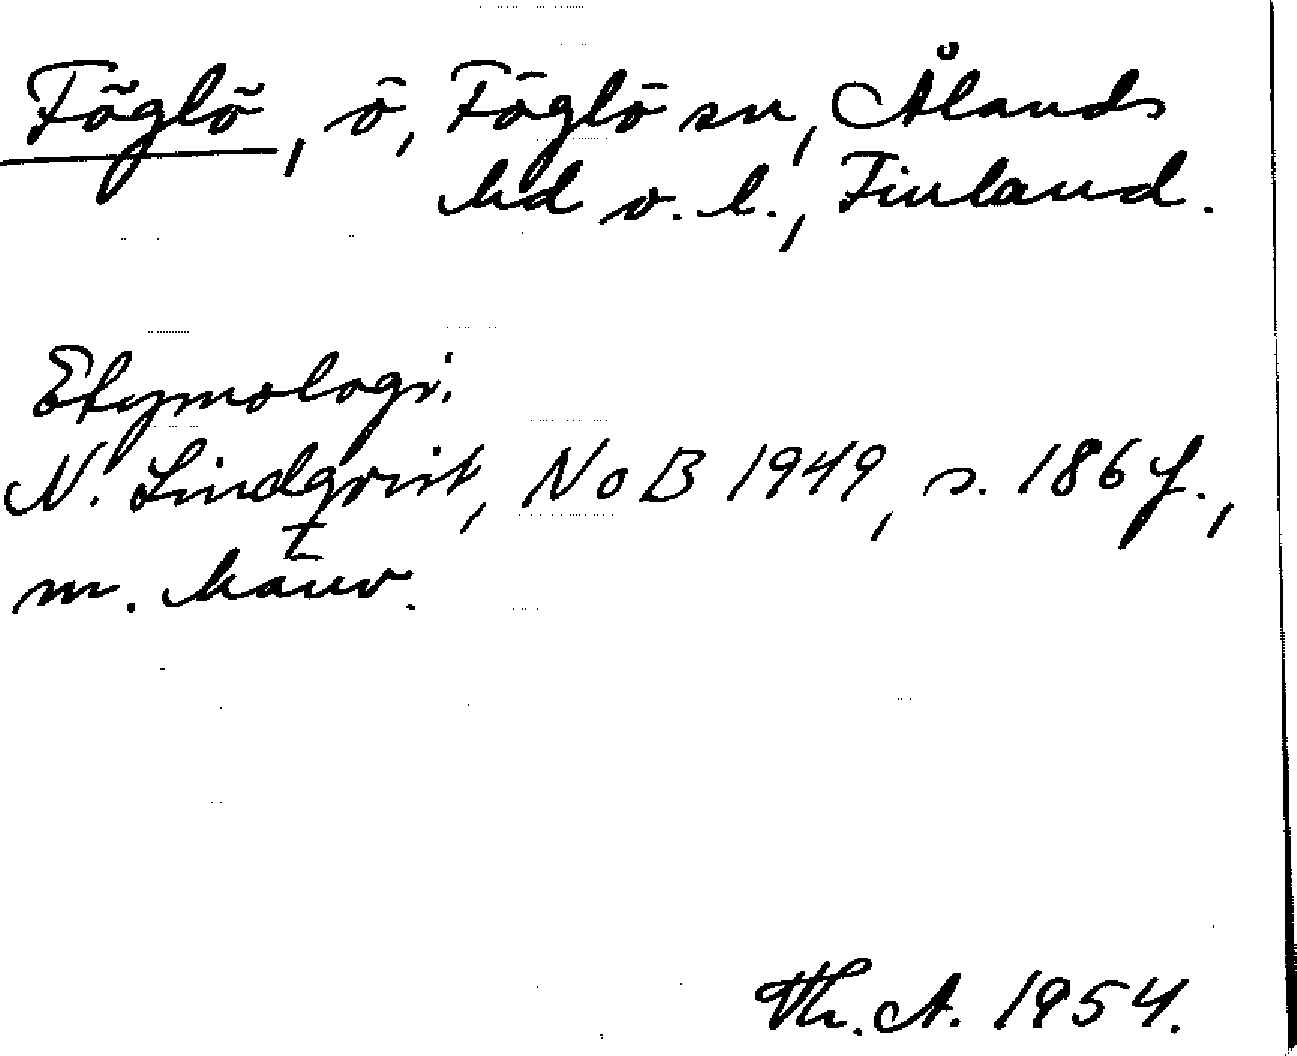 Föglö, ö, Föglö sn, Ålands
hd o. l., Finland.
Etymologi.
N. Lindqvist, NoB 1949, s. 186 f.,
m. hänv.
Th. A. 1954.